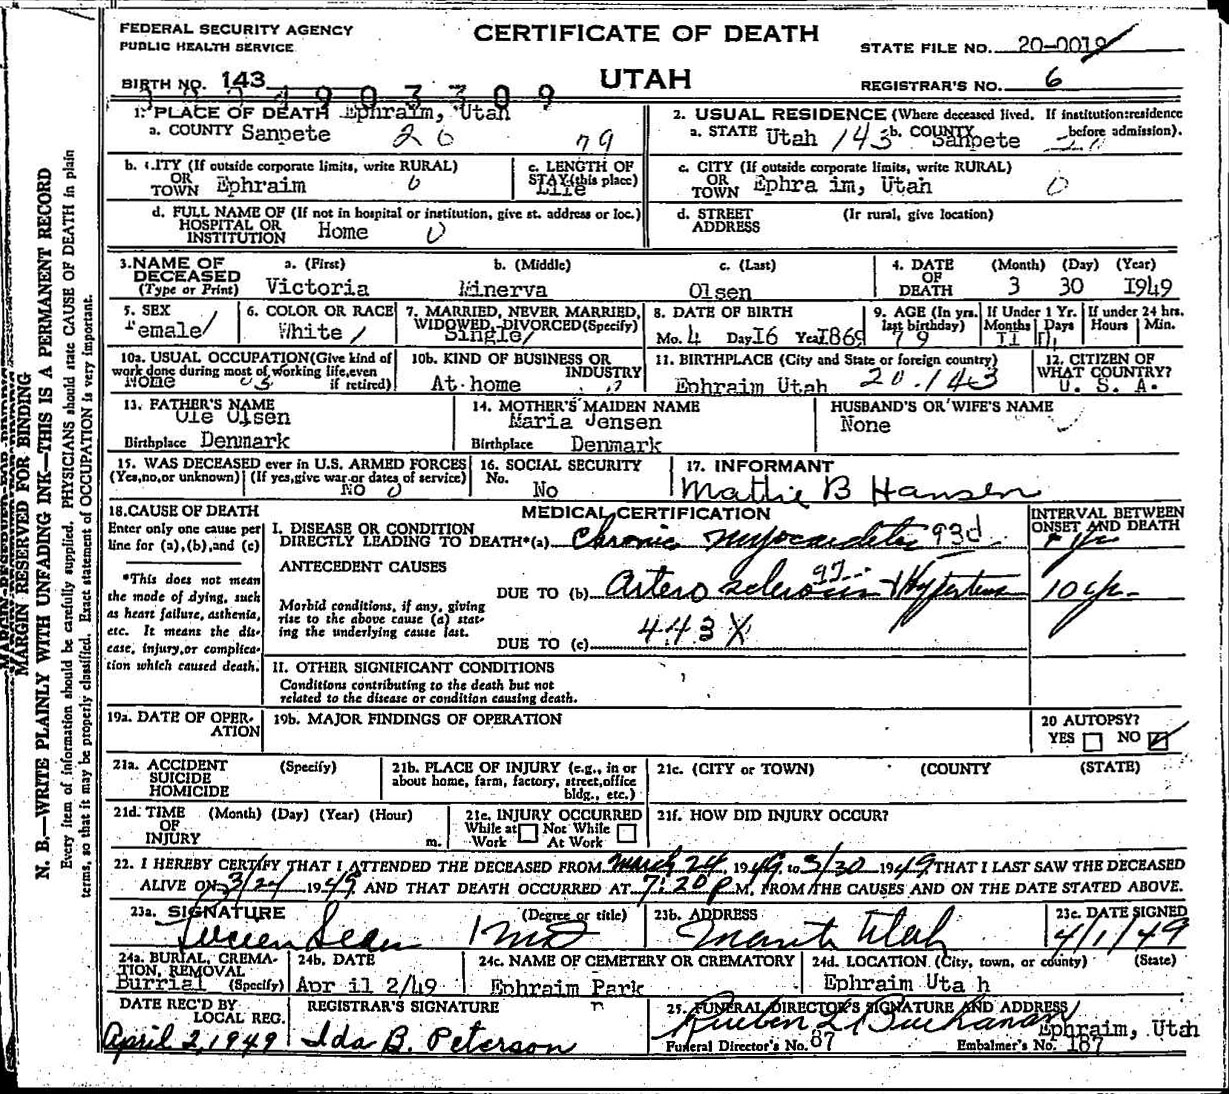 FEDERAL SECURITY AGENCY
PUBLIC HEALTH SERVICE
CERTIFICATE OF DEATH
STATE FILE NO. 20-0019
BIRTH NO. 143
UTAH
REGISTRAR'S NO. 6
1. PLACE OF DEATH Ephraim, Utah
a. COUNTY Sanpete 20 79
2. USUAL RESIDENCE (Where deceased lived. If institution:residence before admission).
a. STATE Utah 143 b. COUNTY Sanpete
b. CITY (If outside corporate limits, write RURAL)
OR TOWN Ephraim 0
c. LENGTH OF STAY (this place)
Life
c. CITY (If outside corporate limits, write RURAL)
OR TOWN Ephra im, Utah 0
d. FULL NAME OF (If not in hospital or institution, give st. address or loc.)
HOSPITAL OR INSTITUTION Home 0
d. STREET ADDRESS (Ir rural, give location)
3. NAME OF DECEASED (Type or Print)
a. (First) b. (Middle) c. (Last)
Victoria Minerva Olsen
4. DATE OF DEATH (Month) (Day) (Year)
3 30 1949
5. SEX
Female
6. COLOR OR RACE
White
7. MARRIED, NEVER MARRIED, WIDOWED, DIVORCED (Specify)
Single
8. DATE OF BIRTH
Mo. 4 Day 16 Year 1869
9. AGE (In yrs. last birthday)
79
If Under 1 Yr. Months Days
11
If under 24 hrs. Hours Min.
10a. USUAL OCCUPATION (Give kind of work done during most of working life, even if retired)
None
10b. KIND OF BUSINESS OR INDUSTRY
At home
11. BIRTHPLACE (City and State or foreign country)
Ephraim Utah 20.143
12. CITIZEN OF WHAT COUNTRY?
U. S. A.
13. FATHER'S NAME
Ole Olsen
Birthplace Denmark
14. MOTHER'S MAIDEN NAME
Maria Jensen
Birthplace Denmark
HUSBAND'S OR WIFE'S NAME
None
15. WAS DECEASED ever in U.S. ARMED FORCES
(Yes, no, or unknown) (If yes, give war or dates of service)
No 0
16. SOCIAL SECURITY No.
No
17. INFORMANT
Mattie B Hansen
18. CAUSE OF DEATH
Enter only one cause per line for (a), (b), and (c)
MEDICAL CERTIFICATION
INTERVAL BETWEEN ONSET AND DEATH
I. DISEASE OR CONDITION
DIRECTLY LEADING TO DEATH*(a) Chronic Myocarditis 93d
*This does not mean the mode of dying, such as heart failure, asthenia, etc. It means the disease, injury, or complication which caused death.
ANTECEDENT CAUSES
DUE TO (b) Artero sclerosis + Hypertens 97 10 yr-
Morbid conditions, if any, giving rise to the above cause (a) stating the underlying cause last.
DUE TO (c) 443X
II. OTHER SIGNIFICANT CONDITIONS
Conditions contributing to the death but not related to the disease or condition causing death.
19a. DATE OF OPERATION
19b. MAJOR FINDINGS OF OPERATION
20 AUTOPSY?
YES NO
21a. ACCIDENT SUICIDE HOMICIDE (Specify)
21b. PLACE OF INJURY (e.g., in or about home, farm, factory, street, office bldg., etc.)
21c. (CITY or TOWN) (COUNTY) (STATE)
21d. TIME OF INJURY (Month) (Day) (Year) (Hour) m.
21e. INJURY OCCURRED
While at Work Not While At Work
21f. HOW DID INJURY OCCUR?
22. I HEREBY CERTIFY THAT I ATTENDED THE DECEASED FROM March 24, 1949 to 3/30 1949, THAT I LAST SAW THE DECEASED
ALIVE ON 3/24 1949 AND THAT DEATH OCCURRED AT 7:20 P M. FROM THE CAUSES AND ON THE DATE STATED ABOVE.
23a. SIGNATURE (Degree or title)
Lucien Sears MD
23b. ADDRESS
Manti Utah
23c. DATE SIGNED
4/1/49
24a. BURIAL, CREMATION, REMOVAL (Specify)
Burrial
24b. DATE
Apr il 2/49
24c. NAME OF CEMETERY OR CREMATORY
Ephraim Park
24d. LOCATION (City, town, or county) (State)
Ephraim Uta h
DATE REC'D BY LOCAL REG.
April 2, 1949
REGISTRAR'S SIGNATURE
Ida B. Peterson
25. FUNERAL DIRECTOR'S SIGNATURE AND ADDRESS
Rueben L Buchanan Ephraim, Utah
Funeral Director's No. 87
Embalmer's No. 187
MARGIN RESERVED FOR BINDING
N. B.—WRITE PLAINLY WITH UNFADING INK—THIS IS A PERMANENT RECORD
Every item of information should be carefully supplied. PHYSICIANS should state CAUSE OF DEATH in plain
terms, so that it may be properly classified. Exact statement of OCCUPATION is very important.